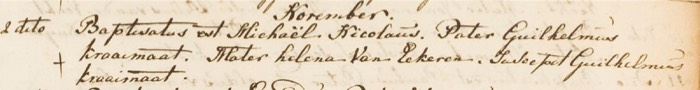 November.
2 dito Baptisatus est Michaël Nicolaüs. Pater Guilhelmus
+ kraaimaat. Mater helena Van Eekeren. Suscepit Guilhelmus
kraaimaat.